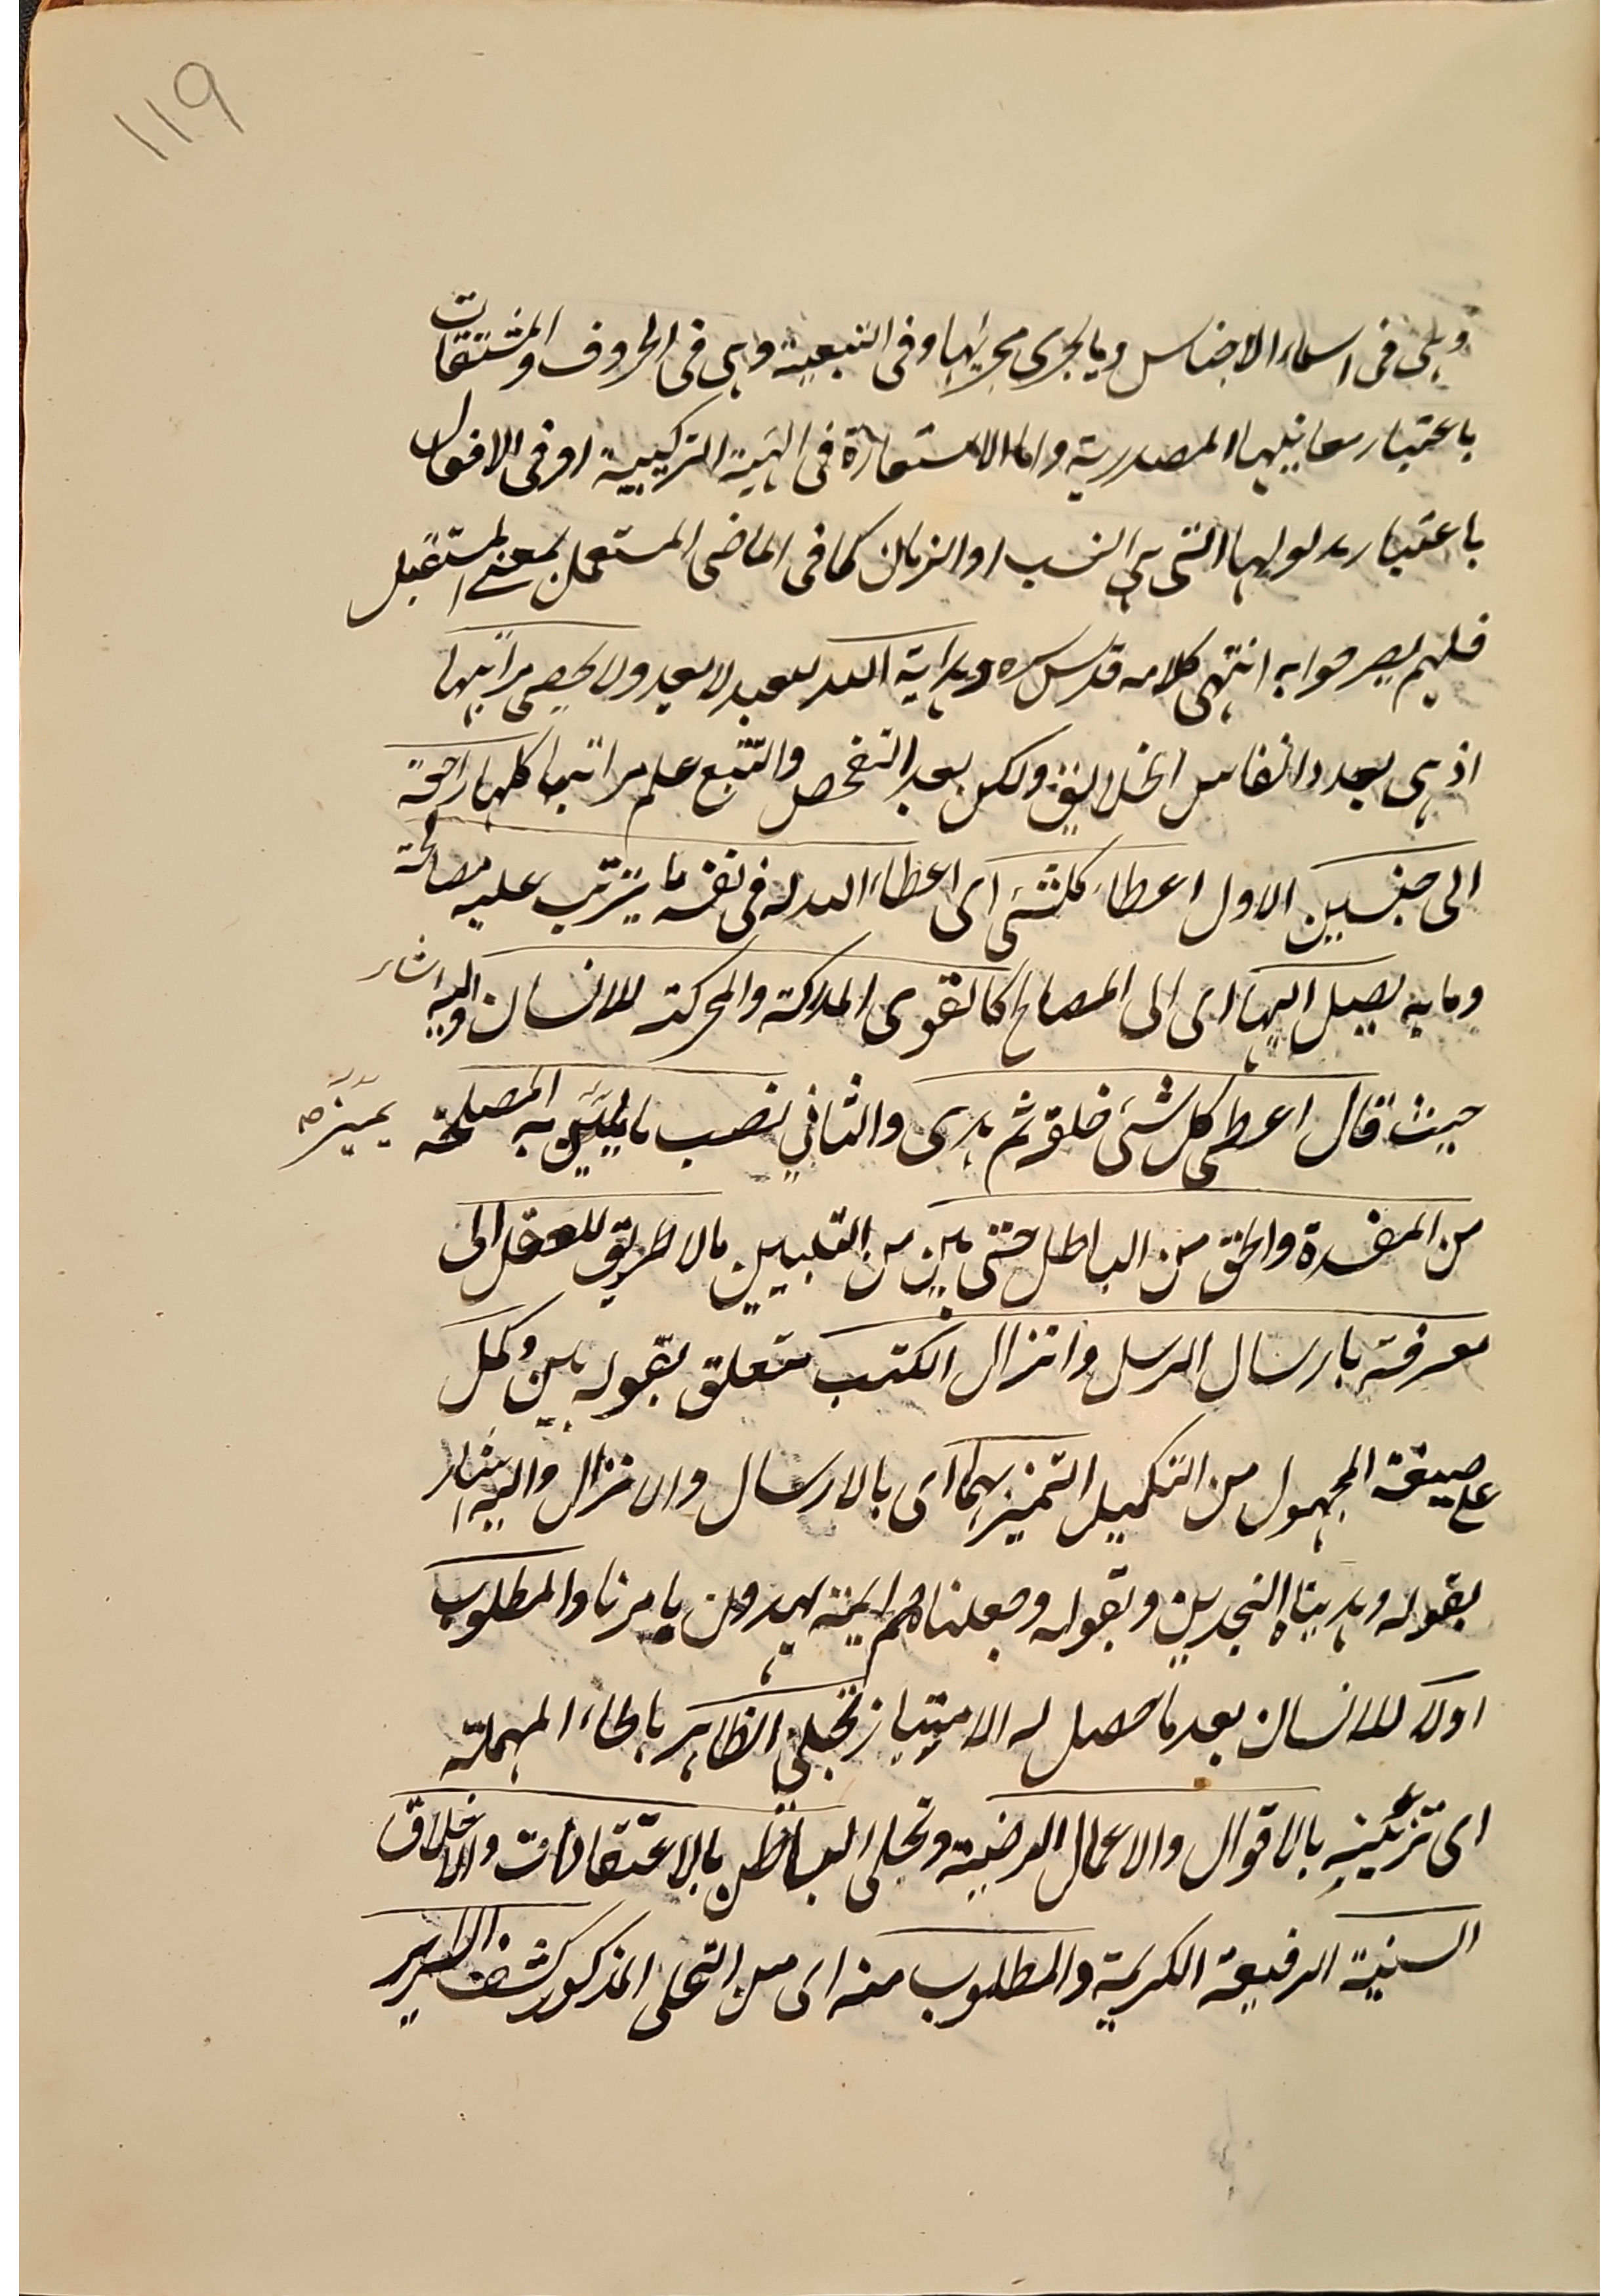 ١١٩
وهى فى اسماء الاجناس وما يجرى مجريها وفى التبعية وهى فى الحروف والمشتقات
باعتبار معانيها المصدرية واما الاستعارة فى الهيئة التركيبية او فى الافعال
باعتبار مدلولها التى هى النسب او الزمان كما فى الماضى المستعمل بمعنے المستقبل
فلم يصرحوا به انتهى كلامه قدس سره وهداية الله للعبد لا يعد ولا يحصى مراتبها
اذ هى بعدد انفاس الخلايق ولكن بعد التفحص والتتبع علم مراتبها كلها راجعة
الى جنسين الاول اعطاء كلشئ اى اعطاء الله له فى نفسه ما يترتب عليه مصالحه
وما به يصل اليها اى الى المصالح كالقوى المدركة والمحركة للانسان واليه اشار
حيث قال اعطى كل شئ خلقه ثم هدى والثاني نصب ما يميز به المصلحة
يميزه
من المفسدة والحق من الباطل حتى بين من القلبيين مالا طريق للعقل الى
معرفته بارسال الرسل وانزال الكتب متعلق بقوله بين وكمل
على صيغة المجهول من التكميل التميز بهما اى بالارسال والانزال واليه اشار
بقوله وهديناه النجدين وبقوله وجعلناهم ايمة يهدون بامرنا والمطلوب
اولا للانسان بعد ما حصل له الامتياز تحلى الظاهر بالحاء المهملة
اى تزيينه بالاقوال والاعمال المرضية وتحلى الباطن بالاعتقادات والاخلاق
السنية الرفيعة الكريمة والمطلوب منه اى من التحلى المذكور كشف السراير